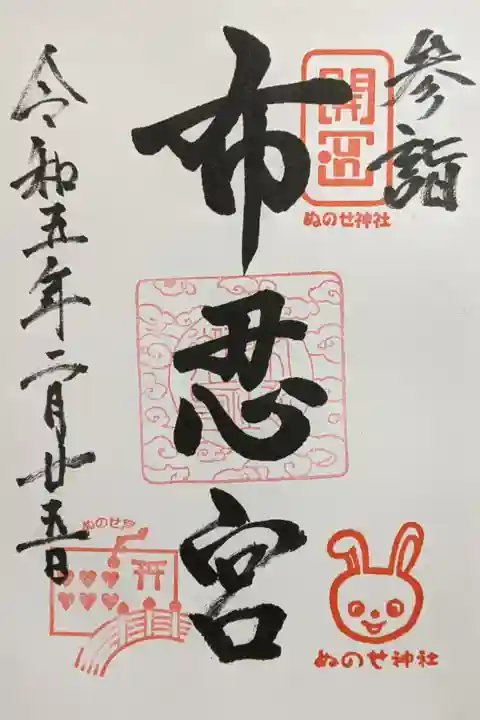 参詣
開運
ぬのせ神社
布忍宮
ぬのせ神社
令和五年二月廿五日
ぬのせ